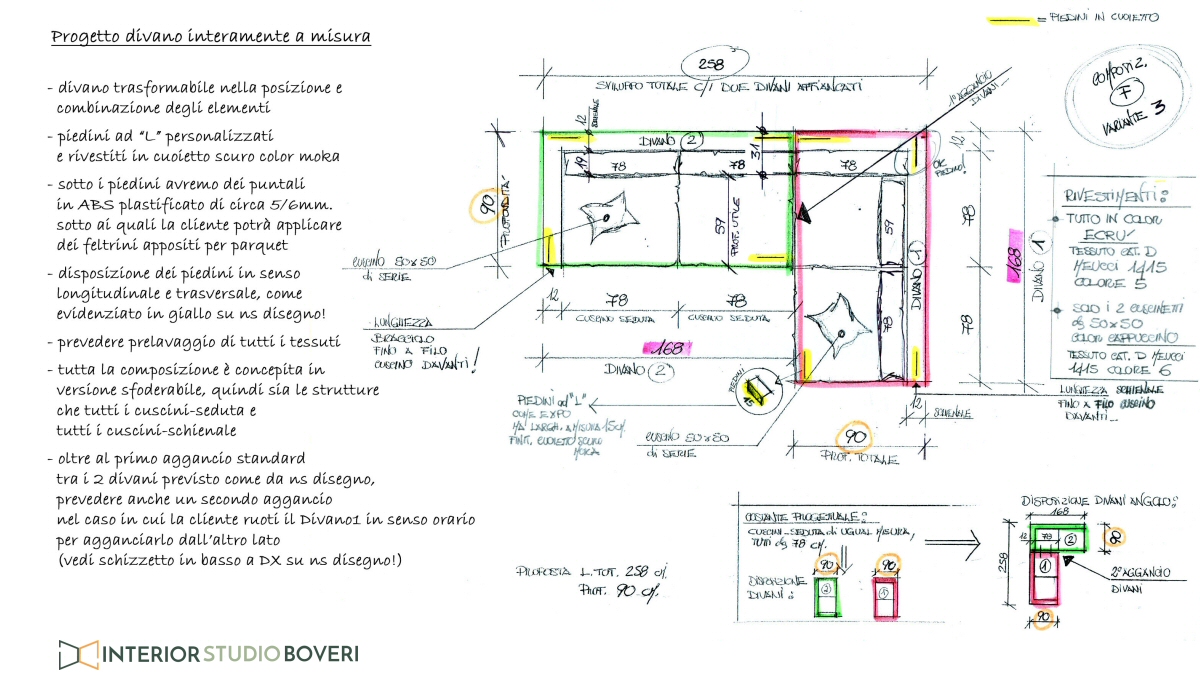 Progetto divano interamente a misura
- divano trasformabile nella posizione e
combinazione degli elementi
- piedini ad "L" personalizzati
e rivestiti in cuoietto scuro color moka
- sotto i piedini avremo dei puntali
in ABS plastificato di circa 5/6mm.
sotto ai quali la cliente potrà applicare
dei feltrini appositi per parquet
- disposizione dei piedini in senso
longitudinale e trasversale, come
evidenziato in giallo su ns disegno!
- prevedere prelavaggio di tutti i tessuti
- tutta la composizione è concepita in
versione sfoderabile, quindi sia le strutture
che tutti i cuscini-seduta e
tutti i cuscini-schienale
- oltre al primo aggancio standard
tra i 2 divani previsto come da ns disegno,
prevedere anche un secondo aggancio
nel caso in cui la cliente ruoti il Divano1 in senso orario
per agganciarlo dall'altro lato
(vedi schizzetto in basso a DX su ns disegno!)
INTERIOR STUDIO BOVERI
= PIEDINI IN CUOIETTO
COMPOSIZ.
F
VARIANTE 3
258
SVILUPPO TOTALE C/I DUE DIVANI AFFIANCATI
1° AGGANCIO
DIVANI
12
SCHIENALE
DIVANO 2
31
19
78
78
78
OK
PIEDINO!
12
90
PROFONDITA'
59
PROF. UTILE
59
78
168
DIVANO 1
DIVANO 1
78
78
CUSCINO 50x50
di SERIE
12
78
78
CUSCINO SEDUTA
CUSCINO SEDUTA
LUNGHEZZA
BRACCIOLO
FINO A FILO
CUSCINO DAVANTI!
168
DIVANO 2
PIEDINI
15
PIEDINI ad "L"
COME EXPO
MA LARGH. A MISURA 15 c/.
FINIT. CUOIETTO SCURO
MOKA
CUSCINO 50x50
di SERIE
12
SCHIENALE
90
PROF. TOTALE
RIVESTIMENTI:
TUTTO IN COLOR
ECRU'
TESSUTO CAT. D
MEUCCI 1415
COLORE 5
SOLO I 2 CUSCINETTI
dg 50x50
COLOR CAPPUCCINO
TESSUTO CAT. D MEUCCI
1415 COLORE 6
LUNGHEZZA SCHIENALE
FINO A FILO CUSCINO
DAVANTI
PROPOSTA L. TOT. 258 c/.
PROF. 90 c/.
COSTANTE PROGETTUALE:
CUSCINI-SEDUTA di UGUAL MISURA,
TUTI dg 78 c/.
DISPOSIZIONE
DIVANI:
90
2
90
1
DISPOSIZIONE DIVANI ANGOLO:
168
12
78
2
90
1
258
90
2° AGGANCIO
DIVANI